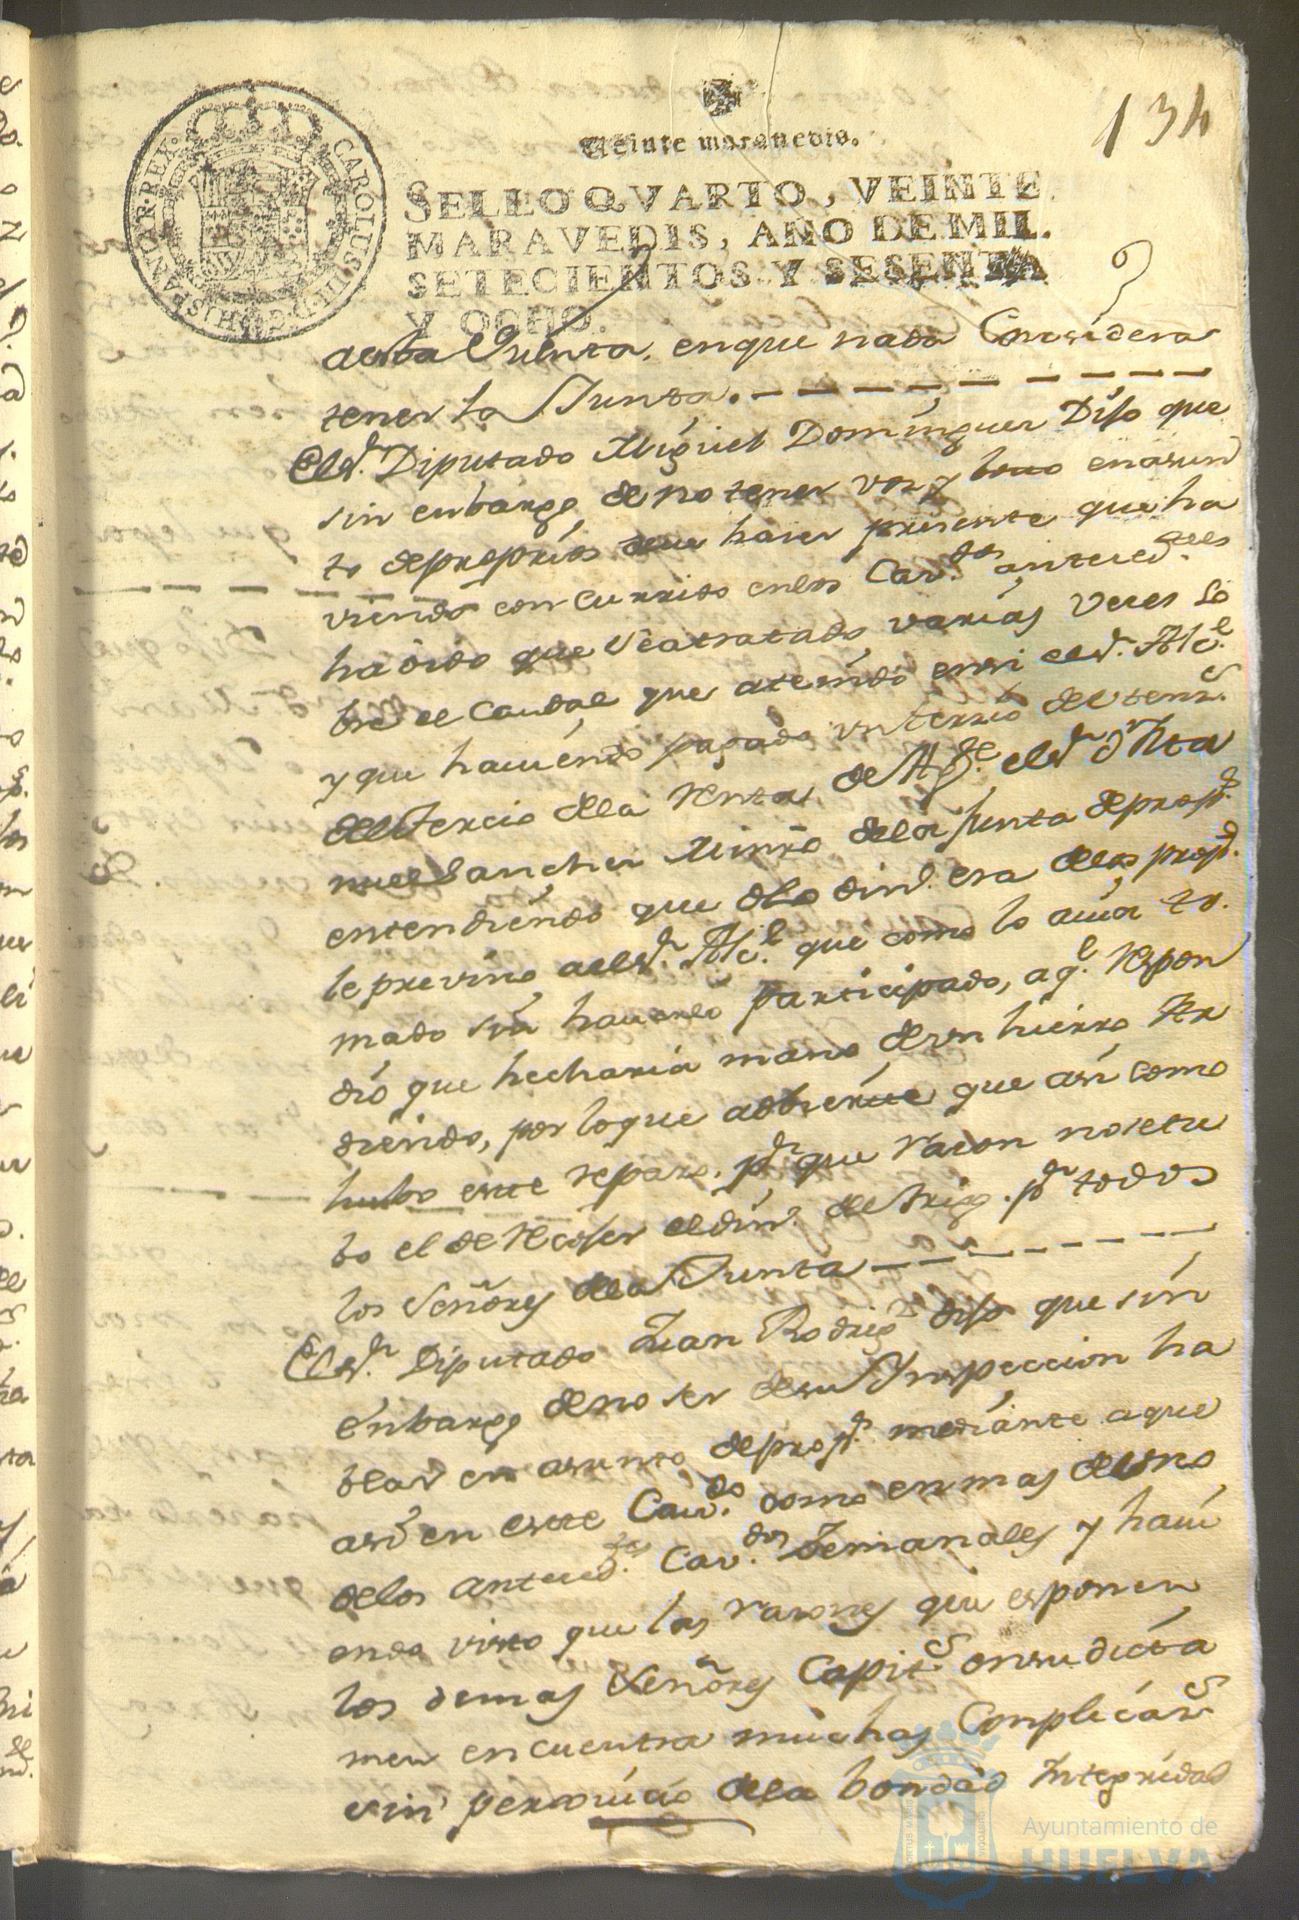 134
HISPANIAR·REX· CAROLUS·III·D·G·
Veinte maravedis.
SELLO QVARTO, VEINTE
MARAVEDIS, AÑO DE MIL
SETECIENTOS Y SESENTA
Y OCHO.
Quenta, en que nada Considera
tener la Junta.
El sr. Diputado Miguel Dominguez Dijo que
sin enbargo de no tener voz y boto en asun
to de proprios deve hacer presente que ha
viendo concurrido en los Cav.dos anteced.tes
ha oido que se a tratado varias veces so
bre el Caudal que atenido en si el sr. Alc.e
y que haciendo pagado un tercio de
del tercio de la renta, de Ag.te el sr. dn.
nuel Sanchez Minro de la Junta de prop.s
entendiendo que dho din.o era de los prop.s
le previno a el sr. Alc.e que como lo avia to
mado sin hacerlo participado, a q.e respon
dio que hecharia mano de un hierro Ar
diendo, por lo que adbierte que asi como
hubo este reparo, p.r que razon no se tu
bo el de Recojer el din.o de trigo. p.r todos
los señores de la Junta
El sr. Diputado Juan Rodrig.z dijo que sin
enbargo de no ser de su Ynspeccion ha
blar en asunto de prop.s mediante a que
asi en este Cav.do como en mas de uno
de los anteced.tes Cav.dos Semanales y havi
endo visto que las razones que esponen
los demas señores Capit.s en su dicta
men encuentra muchas Conplicaz.s
sin perjuicio de la bondad Integridad
Ayuntamiento de
HUELVA